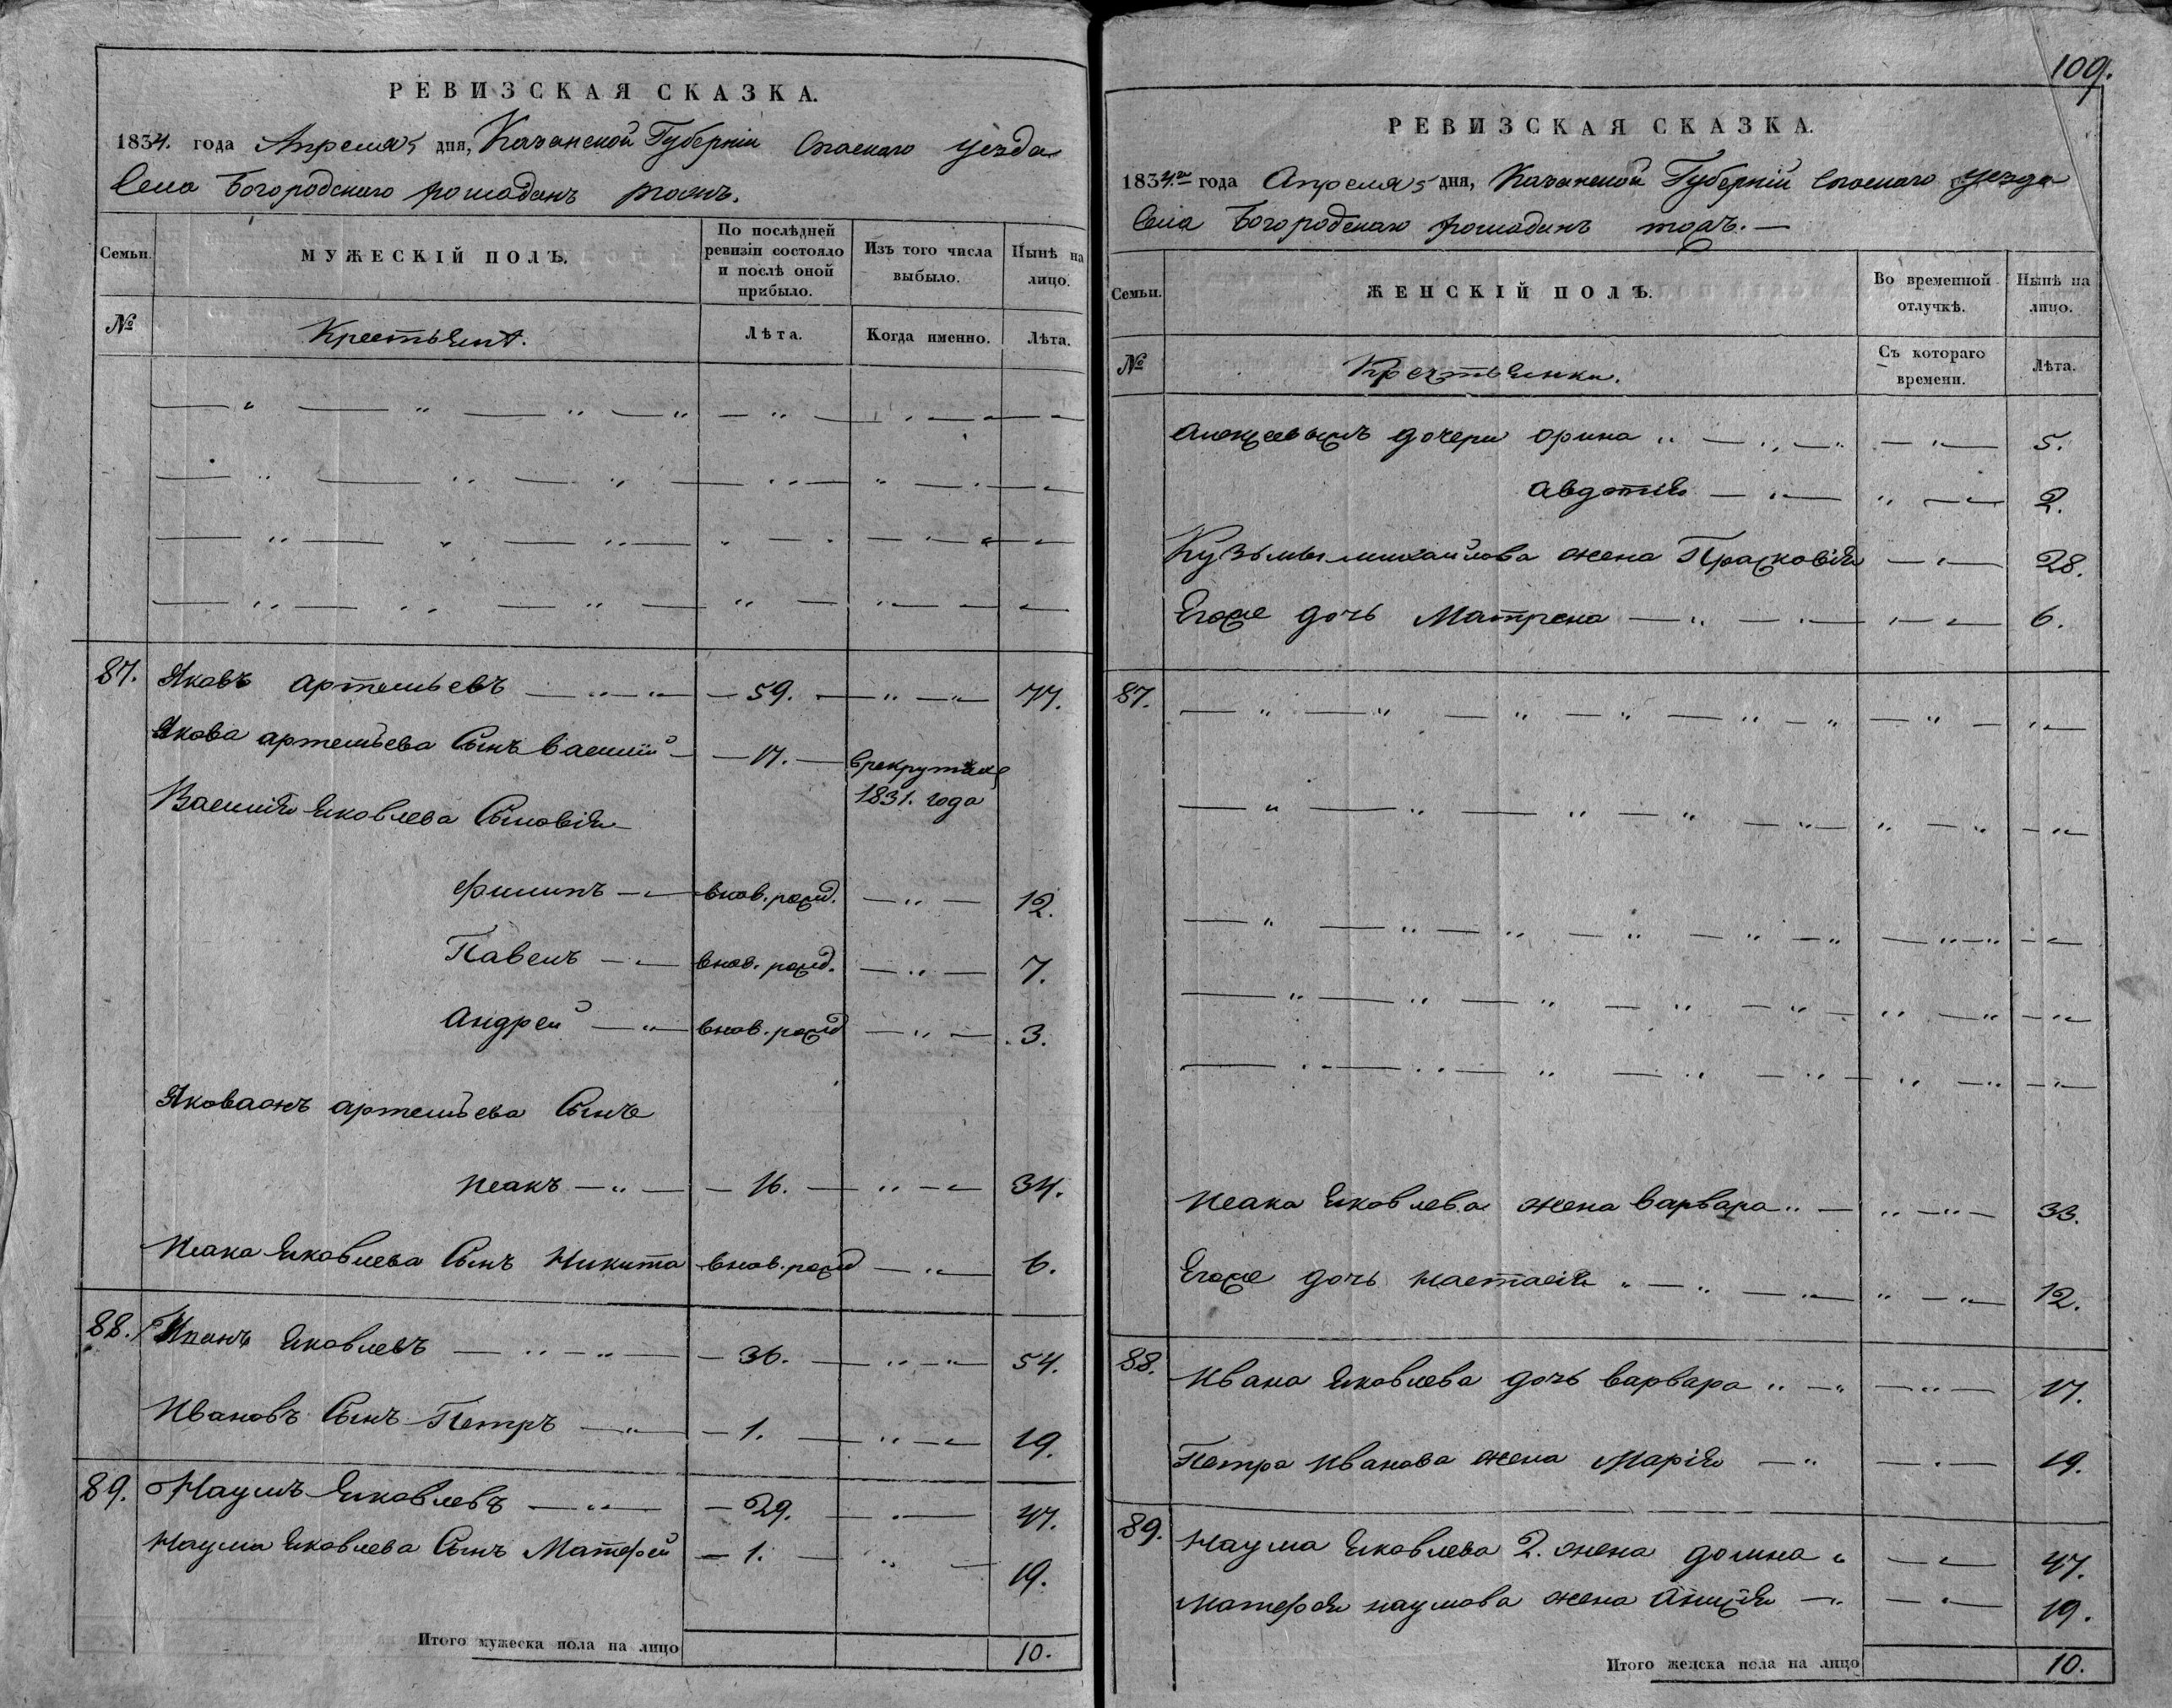 РЕВИЗСКАЯ СКАЗКА.
1834. года Апреля 5 дня, Казанской Губерніи Спаскаго уезда
Села Богородскаго тожъ.
Семьи.
МУЖЕСКІЙ ПОЛЪ.
По послѣдней ревизіи состояло и послѣ оной прибыло.
Изъ того числа выбыло.
Нынѣ на лицо.
№
Крестьяна.
Лѣта.
Когда именно.
Лѣта.
87. Яковъ Артемьевъ 59. 77.
Якова артемьева Сынъ василий 17. врекрутахъ
1831. года
Василия яковлева Сыновія
филипъ внов. рожд. 12.
Павелъ внов. рожд. 7.
Андрей внов. рожд 3.
Яковаожъ артемьева Сынъ
Исакъ 16. 34.
Исака яковлева Сынъ Никита внов. рожд 6.
88. Иванъ яковлевъ 36. 54.
Ивановъ Сынъ Петръ 1. 19.
89. Наумъ яковлевъ 29. 47.
Наума яковлева Сынъ Матфей 1. 19.
Итого мужеска пола на лицо 10.
109.
РЕВИЗСКАЯ СКАЗКА.
1834го года Апреля 5 дня, Казанской Губерній Спаскаго уезда
Села Богородскаго тожъ.
Семьи.
ЖЕНСКІЙ ПОЛЪ.
Во временной отлучкѣ.
Нынѣ на лицо.
№
Крестьянки.
Съ котораго времени.
Лѣта.
дочери орина 5.
авдотия 2.
Кузьмы михайлова жена Прасковія 28.
Егоже дочь Матрена 6.
87.
Исака яковлева жена варвара 33.
Егоже дочь настасія 12.
88. Ивана яковлева дочь варвара 17.
Петра Иванова жена Марія 19.
89. Наума яковлева 2. жена домна 47.
Матфея наумова жена 19.
Итого женска пола на лицо 10.